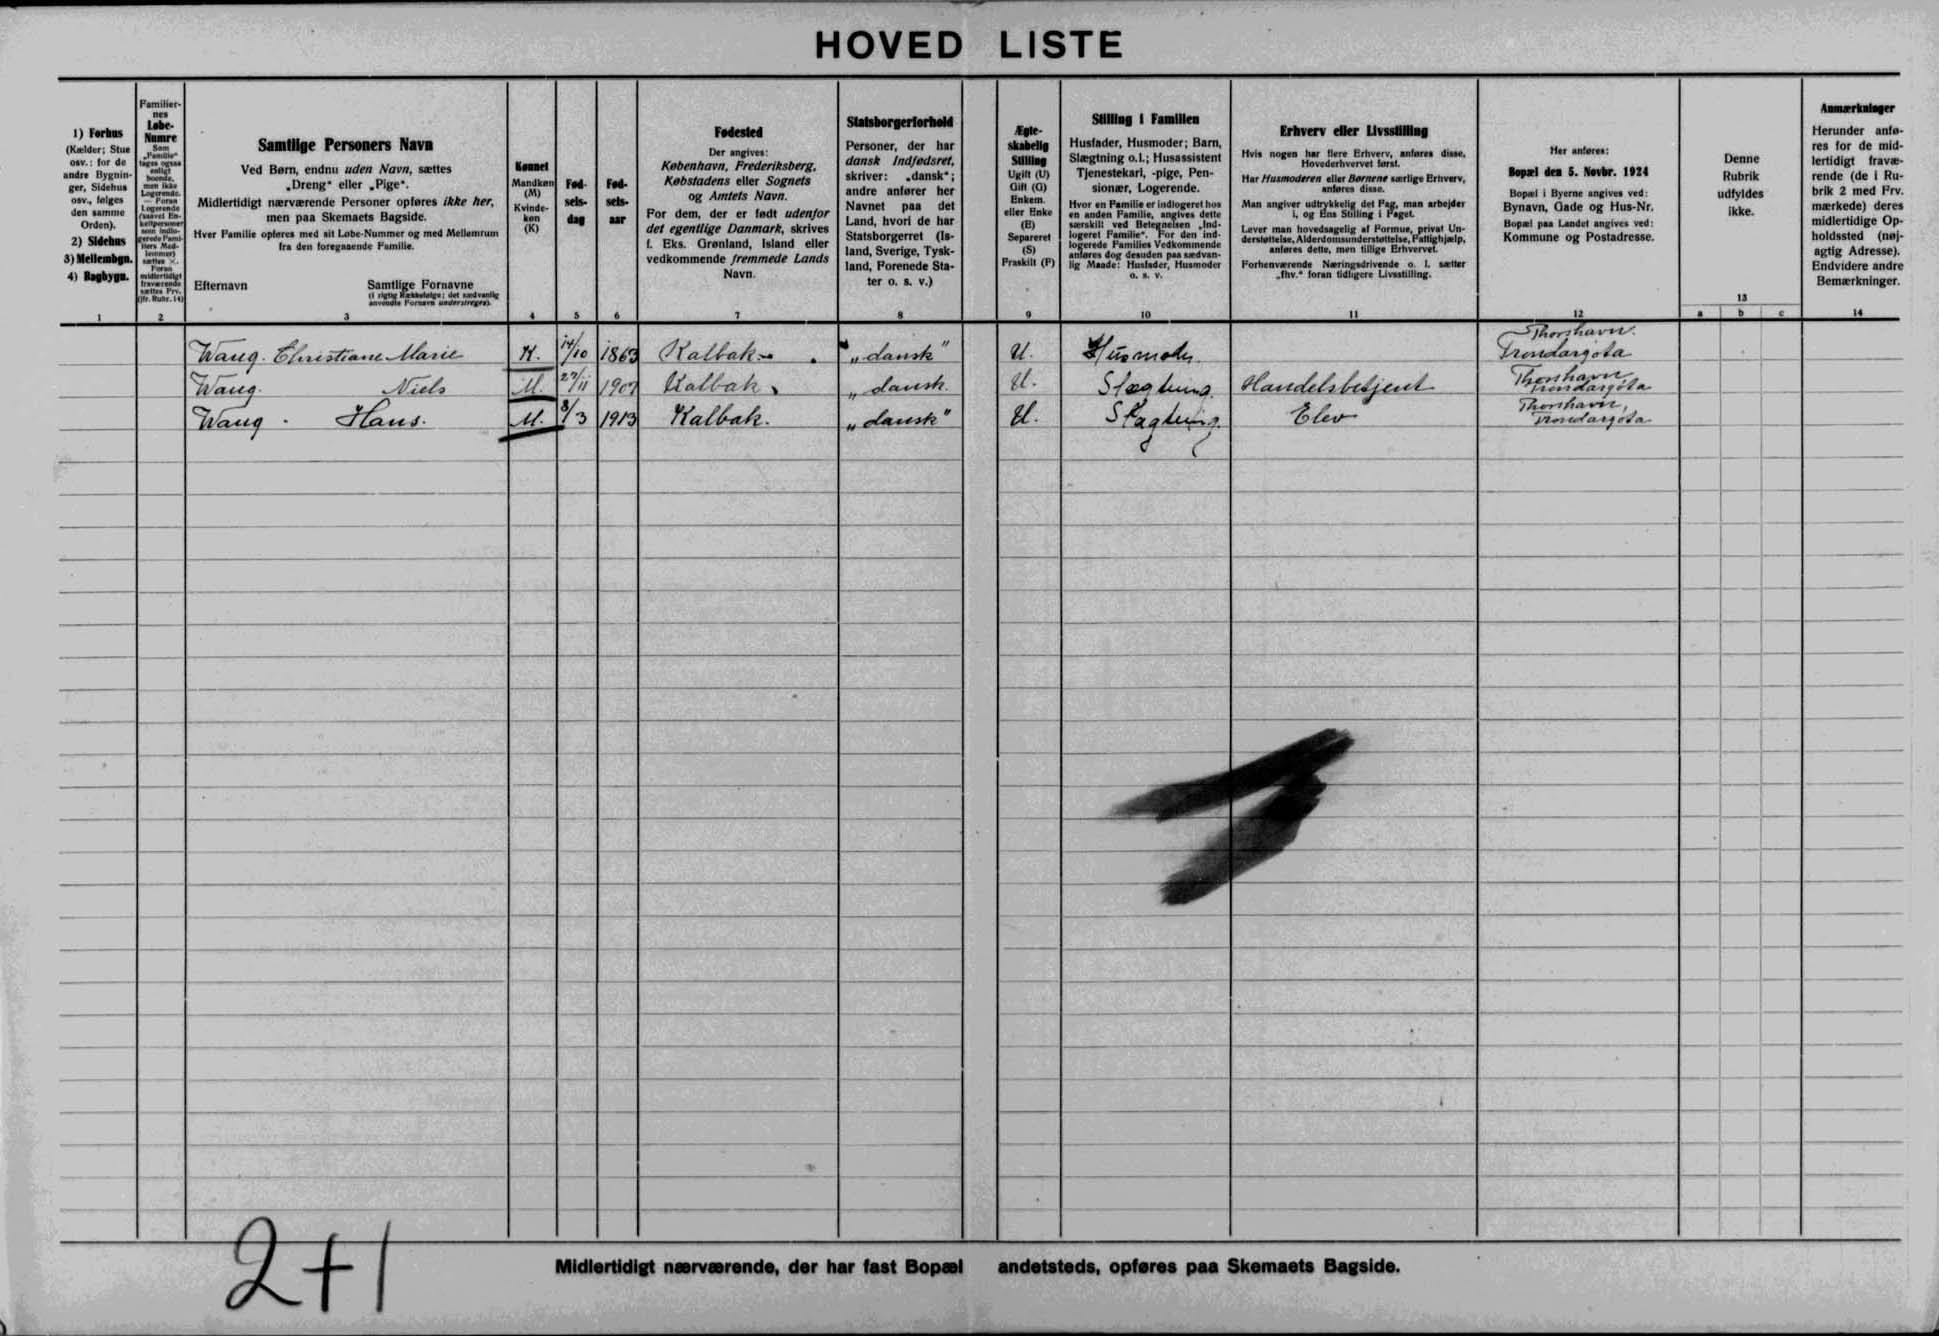 HOVED LISTE
1) Forhus
(Kælder; Stue
osv.: for de
andre Bygnin-
ger, Sidehus
osv., følges
den samme
Orden).
2) Sidehus
3) Mellembgn.
4) Bagbygn.
1
Familier-
nes
Løbe-
Numre
Som
„Familie“
tages ogsaa
enligt
boende,
men ikke
Logerende.
— Foran
Logerende
(saavel En-
keltpersoner
som indlo-
gerede Fami-
liers Med-
lemmer)
sættes ×.
Foran
midlertidigt
fraværende
sættes Frv.
(jfr. Rubr. 14)
2
Samtlige Personers Navn
Ved Børn, endnu uden Navn, sættes
„Dreng“ eller „Pige“.
Midlertidigt nærværende Personer opføres ikke her,
men paa Skemaets Bagside.
Hver Familie opføres med sit Løbe-Nummer og med Mellemrum
fra den foregaaende Familie.
Efternavn
Samtlige Fornavne
(i rigtig Rækkefølge; det sædvanlig
anvendte Fornavn understreges).
3
Kønnet
Mandkøn
(M)
Kvinde-
køn
(K)
4
Fød-
sels-
dag
5
Fød-
sels-
aar
6
Fødested
Der angives:
København, Frederiksberg,
Købstadens eller Sognets
og Amtets Navn.
For dem, der er født udenfor
det egentlige Danmark, skrives
f. Eks. Grønland, Island eller
vedkommende fremmede Lands
Navn.
7
Statsborgerforhold
Personer, der har
dansk Indfødsret,
skriver: „dansk“;
andre anfører her
Navnet paa det
Land, hvori de har
Statsborgerret (Is-
land, Sverige, Tysk-
land, Forenede Sta-
ter o. s. v.)
8
Ægte-
skabelig
Stilling
Ugift (U)
Gift (G)
Enkem.
eller Enke
(E)
Separeret
(S)
Fraskilt (F)
9
Stilling i Familien
Husfader, Husmoder; Barn,
Slægtning o.l.; Husassistent
Tjenestekarl, -pige, Pen-
sionær, Logerende.
Hvor en Familie er indlogeret hos
en anden Familie, angives dette
særskilt ved Betegnelsen „Ind-
logeret Familie“. For den ind-
logerede Families Vedkommende
anføres dog desuden paa sædvan-
lig Maade: Husfader, Husmoder
o. s. v.
10
Erhverv eller Livsstilling
Hvis nogen har flere Erhverv, anføres disse,
Hovederhvervet først.
Har Husmoderen eller Børnene særlige Erhverv,
anføres disse.
Man angiver udtrykkelig det Fag, man arbejder
i, og Ens Stilling i Faget.
Lever man hovedsagelig af Formue, privat Un-
derstøttelse, Alderdomsunderstøttelse, Fattighjælp,
anføres dette, men tillige Erhvervet.
Forhenværende Næringsdrivende o. l. sætter
„fhv.“ foran tidligere Livsstilling.
11
Her anføres:
Bopæl den 5. Novbr. 1924
Bopæl i Byerne angives ved:
Bynavn, Gade og Hus-Nr.
Bopæl paa Landet angives ved:
Kommune og Postadresse.
12
Denne
Rubrik
udfyldes
ikke.
13
a b c
Anmærkninger
Herunder anfø-
res for de mid-
lertidigt fravæ-
rende (de i Ru-
brik 2 med Frv.
mærkede) deres
midlertidige Op-
holdssted (nøj-
agtig Adresse).
Endvidere andre
Bemærkninger.
14
Waug. Christiane Marie K. 14/10 1863 Kalbak. „dansk“ U. Husmoder Thorshavn. Trondargøta
Waug. Niels M. 27/11 1907 Kalbak. „dansk. U. Slægtning. Handelsbetjent Thorshavn Trondargøta
Waug. Hans. M. 8/3 1913 Kalbak. „dansk“ U. Slægtning. Elev Thorshavn, Trondargøta
2+1
Midlertidigt nærværende, der har fast Bopæl andetsteds, opføres paa Skemaets Bagside.